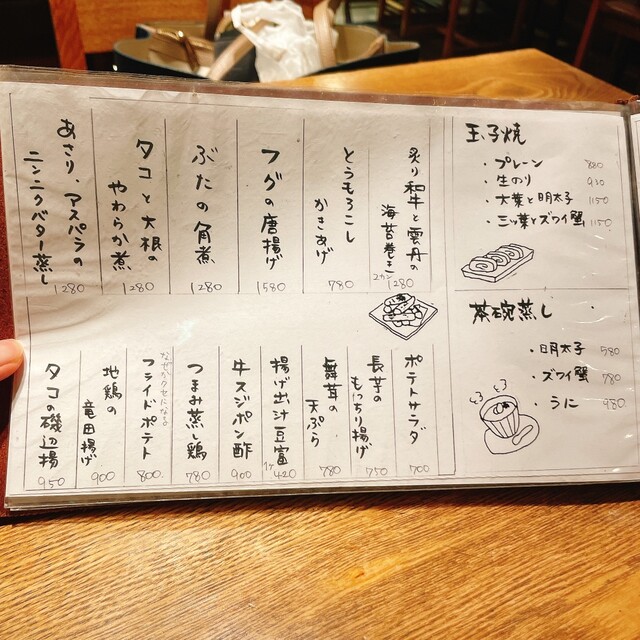 玉子焼
・プレーン 880
・生のり 930
・大葉と明太子 1150
・三ッ葉とズワイ蟹 1150
茶碗蒸し
・明太子 580
・ズワイ蟹 780
・うに 980
炙り和牛と雲丹の
海苔巻き
2カン 1280
とうもろこし
かきあげ
780
フグの唐揚げ
1580
ぶたの角煮
1280
タコと大根の
やわらか煮
1280
あさり、アスパラの
ニンニクバター蒸し
1280
ポテトサラダ
700
長芋の
もっちり揚げ
750
舞茸の
天ぷら
780
揚げ出汁豆富
1ヶ 420
牛スジポン酢
900
つまみ蒸し鶏
780
なぜかクセになる
フライドポテト
800
地鶏の
竜田揚げ
900
タコの磯辺揚
950